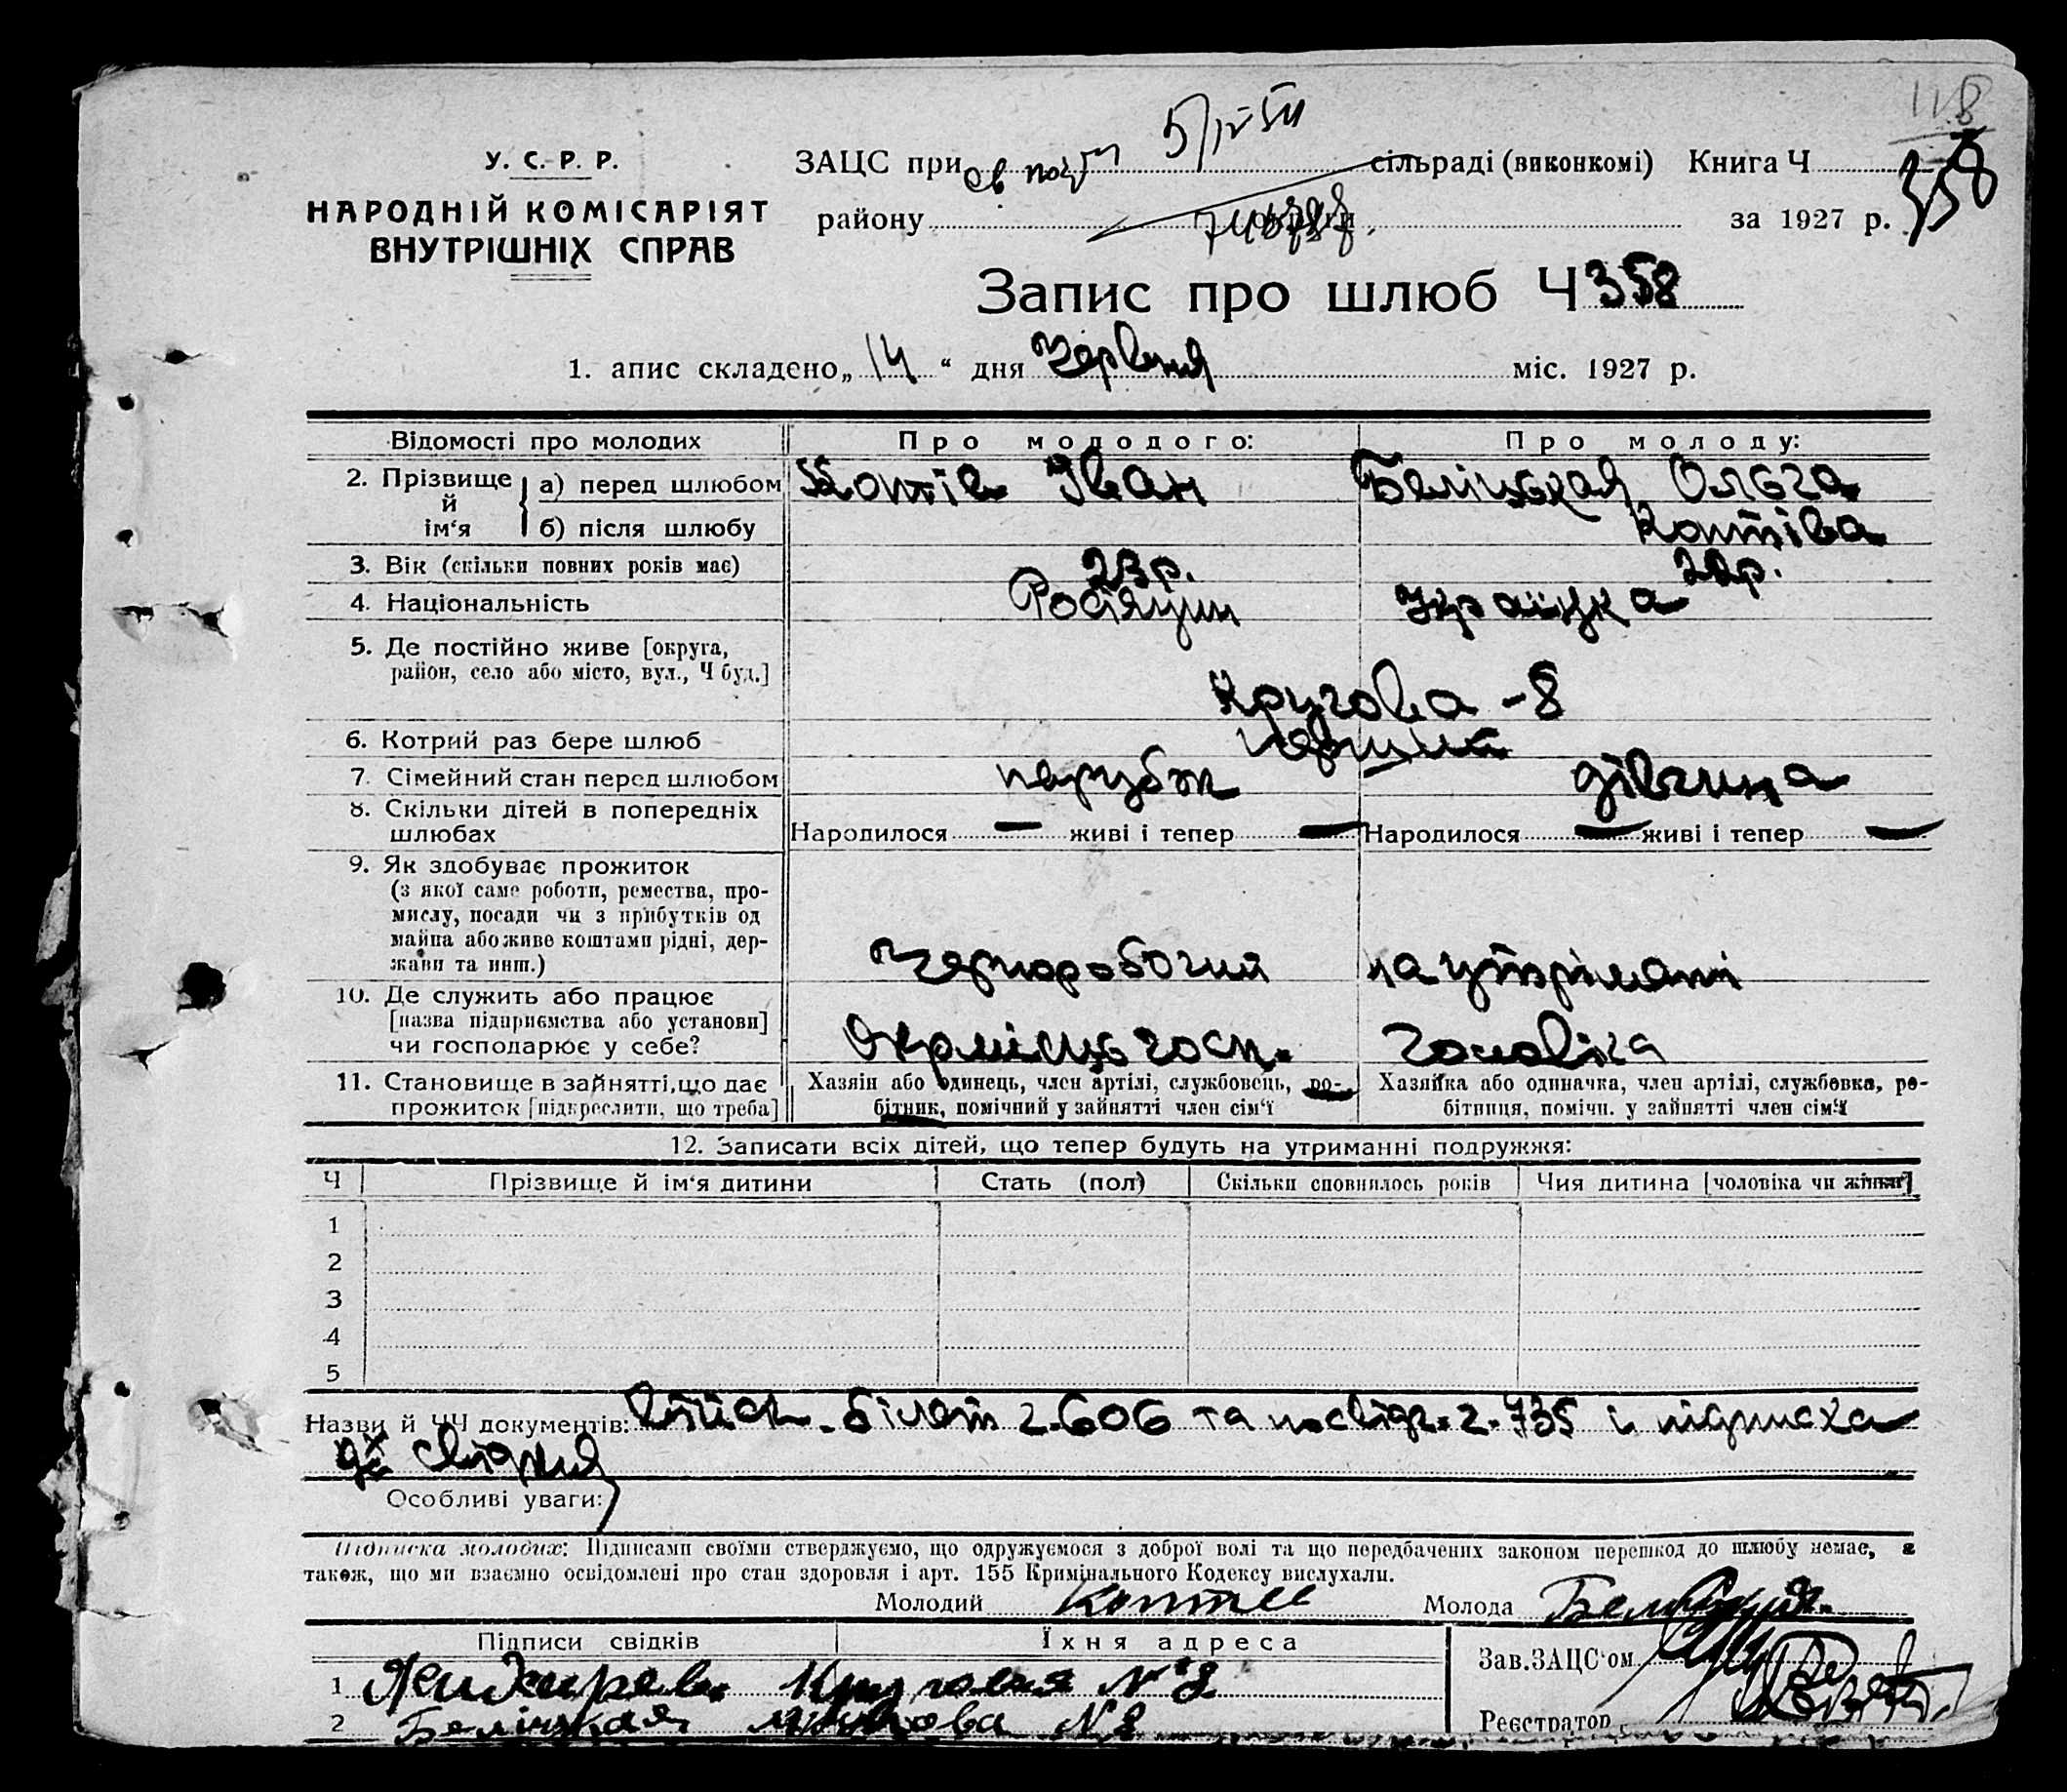 118
У. С. Р. Р.
НАРОДНІЙ КОМІСАРІЯТ
ВНУТРІШНІХ СПРАВ
ЗАЦС при сільраді (виконкомі) Книга Ч 358
району за 1927 р.
Запис про шлюб Ч 358
1. апис складено „14“ дня Червня міс. 1927 р.
Відомості про молодих
Про молодого:
Про молоду:
2. Прізвище й ім‘я
а) перед шлюбом
Коптів Іван
Беліцькая Ольга
б) після шлюбу
Коптіва
3. Вік (скільки повних років має)
23р.
22р.
4. Національність
Росіянин
Українка
5. Де постійно живе [округа,
район, село або місто, вул., Ч буд.]
Кругова - 8
6. Котрий раз бере шлюб
перший
7. Сімейний стан перед шлюбом
парубж
дівчина
8. Скільки дітей в попередніх
шлюбах
Народилося — живі і тепер —
Народилося — живі і тепер —
9. Як здобуває прожиток
(з якої саме роботи, ремества, про-
мислу, посади чи з прибутків од
майна або живе коштами рідні, дер-
жави та инш.)
Чорноробочий
на утрімані
10. Де служить або працює
[назва підприємства або установи]
чи господарює у себе?
Окрмісцьгосп.
чоловіка
11. Становище в зайнятті, що дає
прожиток [підкреслити, що треба]
Хазяїн або одинець, член артілі, службовець, ро-
бітник, помічний у зайнятті член сім‘ї
Хазяйка або одиначка, член артілі, службовка, ро-
бітниця, помічн. у зайнятті член сім‘ї
12. Записати всіх дітей, що тепер будуть на утриманні подружжя:
Ч
Прізвище й ім‘я дитини
Стать (пол)
Скільки сповнилось років
Чия дитина [чоловіка чи жінки]
1
2
3
4
5
Назви й ЧЧ документів: білет 2.606 та посвідч. 2.735 и підписка
свідкия
Особливі уваги:
Підписка молодих: Підписами своїми стверджуємо, що одружуємося з доброї волі та що передбачених законом перешкод до шлюбу немає, а
також, що ми взаємно освідомлені про стан здоровля і арт. 155 Кримінального Кодексу вислухали.
Молодий Коптев Молода Белицкая
Підписи свідків
Їхня адреса
Зав. ЗАЦС‘ом
1 Круговая № 8
2 Беліцкая Кругова № 8
Реєстратор